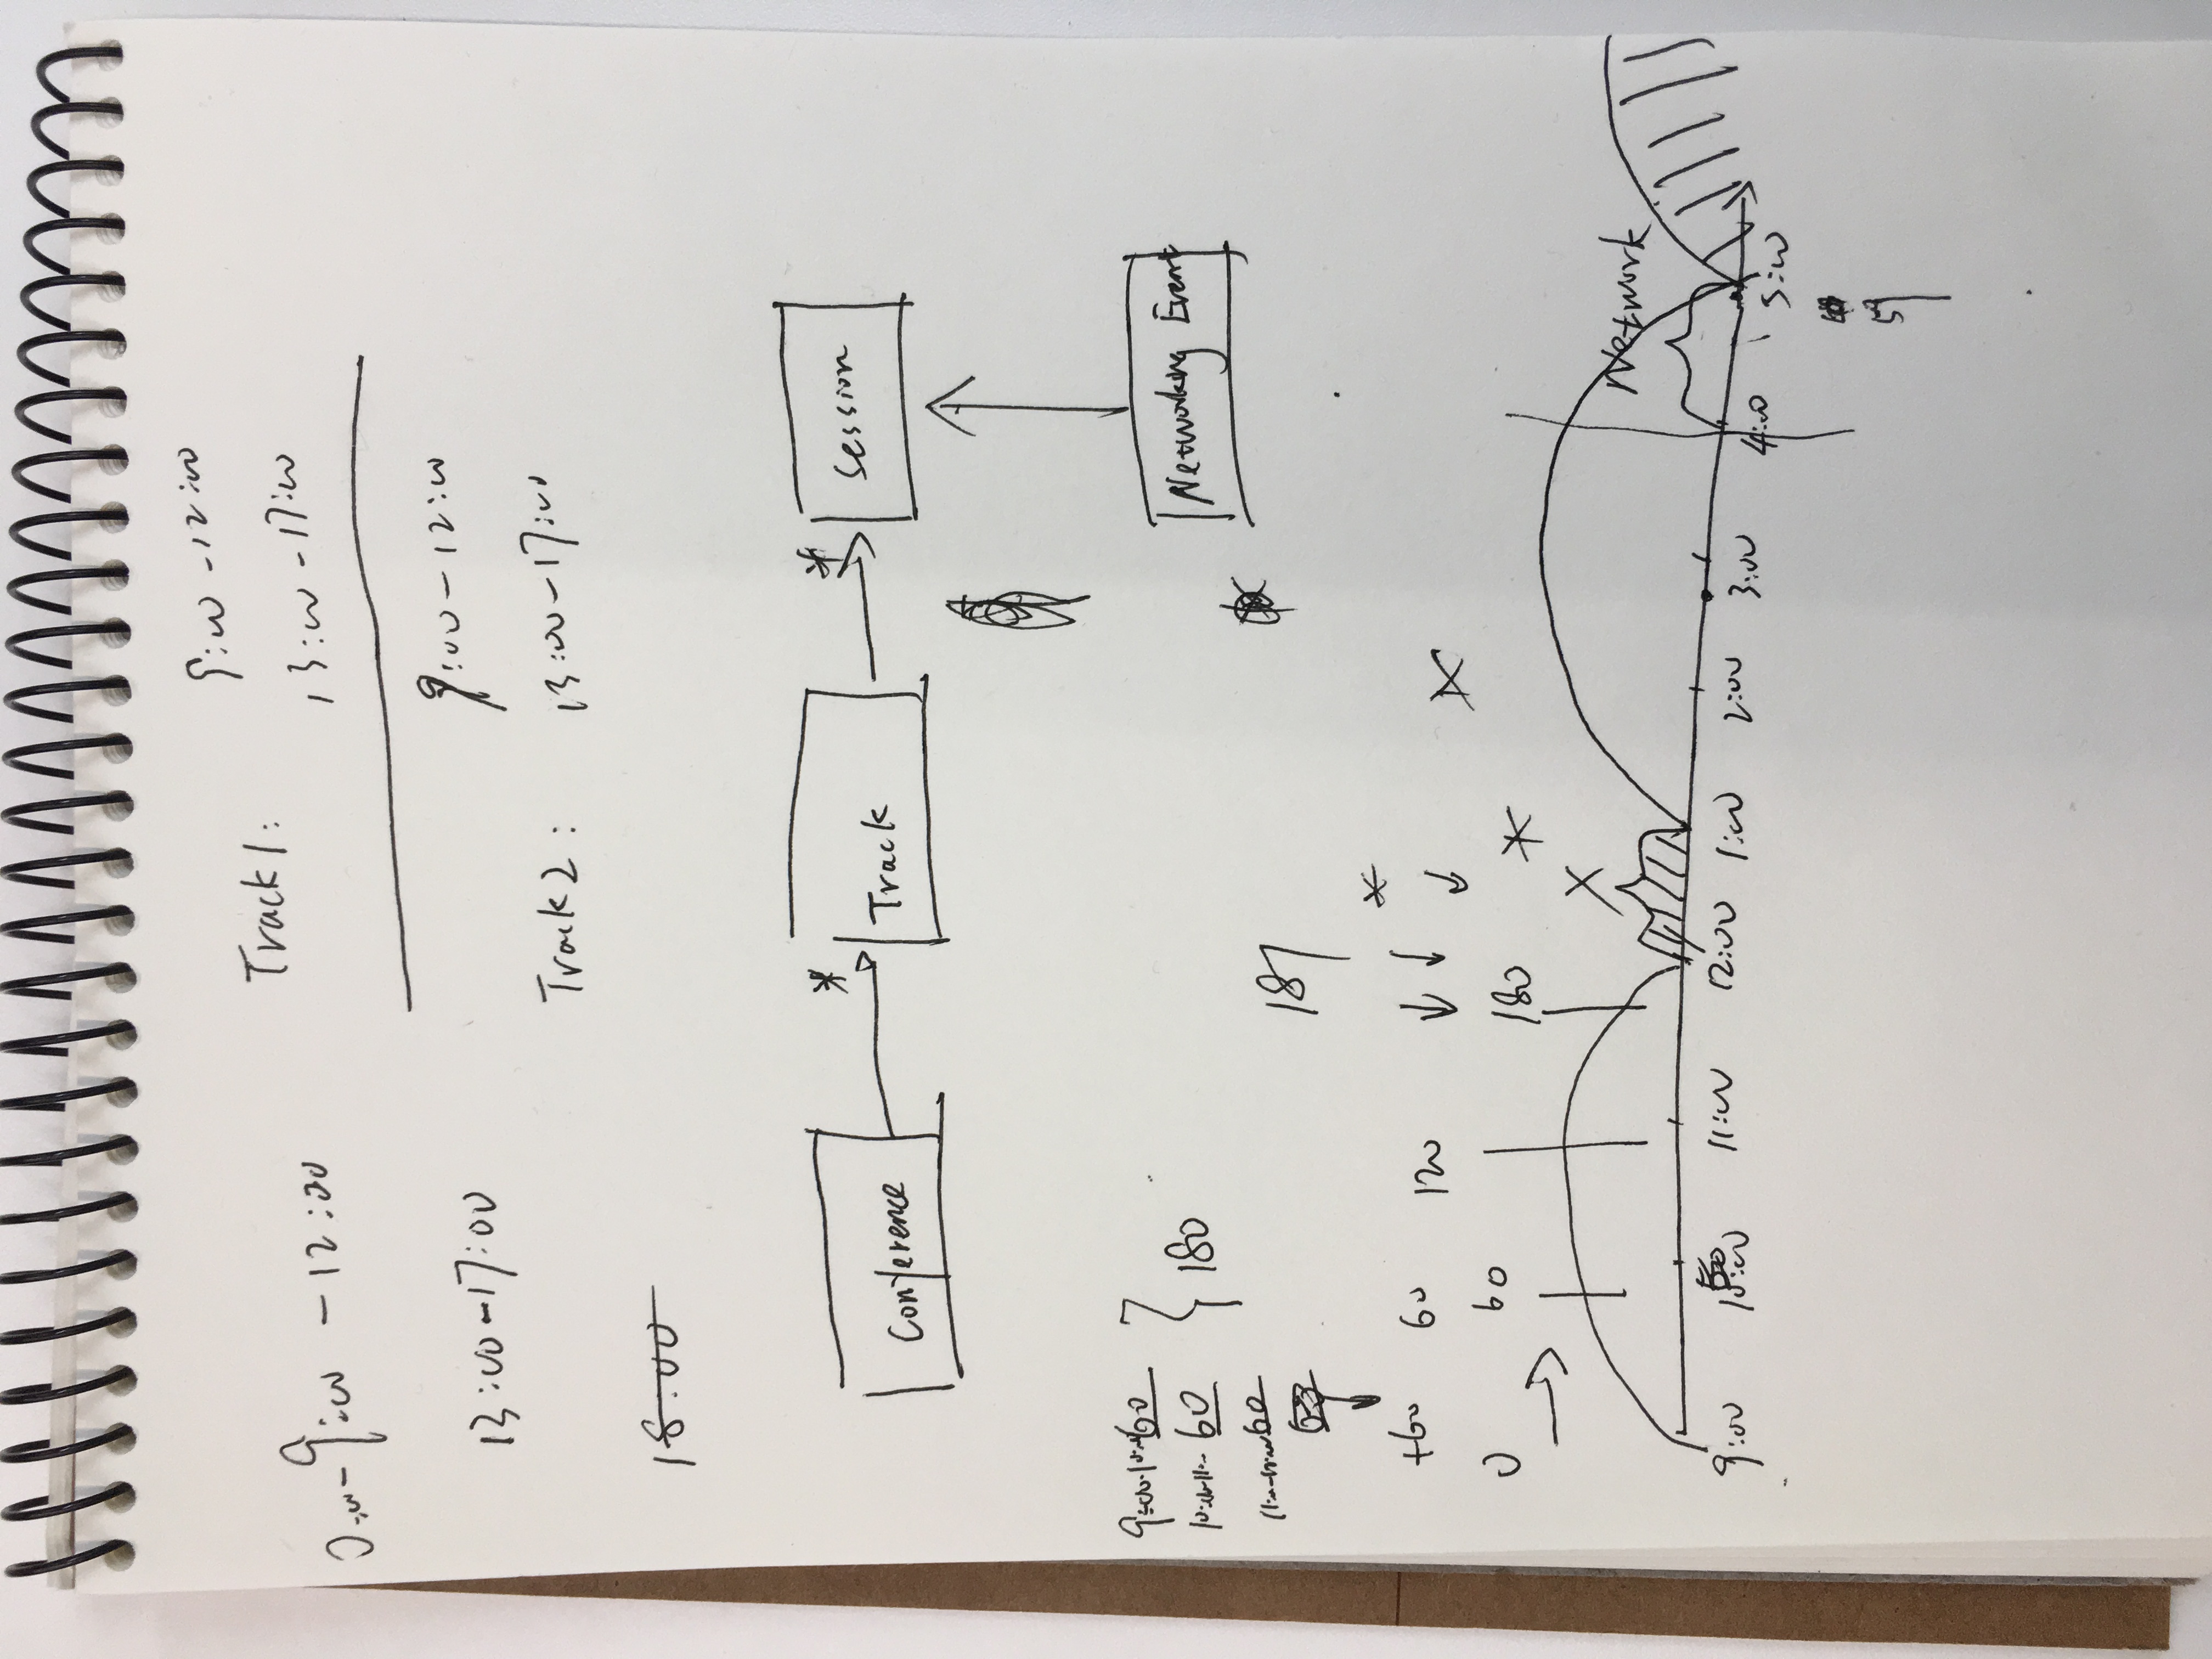 Track1:
9:00 - 12:00
13:00 - 17:00
9:00 - 12:00
13:00 - 17:00
9:00 - 12:00
Track2:
13:00 - 17:00
18:00
*
*
Conference
Track
Session
Networking Event
9:00-10:00 60
60
60
180
187
+60
60
120
0
60
180
Network
9:00
10:00
11:00
12:00
1:00
2:00
3:00
4:00
5:00